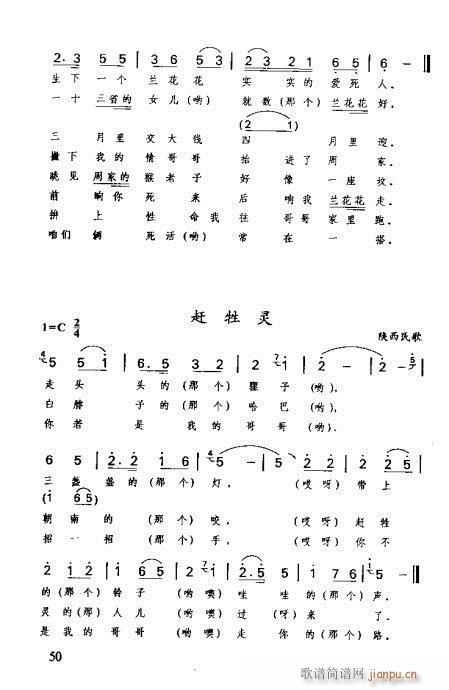 2·3 5 5 | 3 6 5 3 | 2 3 2 1 6 5 | 5 - ‖
生下一个 兰花花 实实的爱死人。
一十三省的 女儿(哟) 就数(那个)兰花花好。
(2 1)
三月里 交大钱 四月里迎。
撇下我的情哥哥 抬进了周家。
眺见周家的猴老子 好像一座坟。
前晌你死来 后晌我兰花花走。
拚上性命我往哥哥家里跑。
咱们俩死活(哟) 常在一搭。
赶牲灵
1=C 2/4
陕西民歌
5 5 1 | 6·5 3 2 | 2 1 6 1 | 2 - | 2 5
走头头的(那个)骡子(哟),
白脖子的(那个)哈巴(哟),
你若是我的哥哥(哟),
6 5 | 2·2 1 6 | 5 - | 2 - | 2 2 5
三盏盏的(那个)灯, (哎呀)带上
(1 6 5)
朝南的(那个)咬, (哎呀)赶牲
招一招(那个)手, (哎呀)你不
2 1 2 | 1 6 5 | 2 1 2 | 2·5 5 | 1 7 6 | 5 - ‖
的(那个)铃子(哟噢)哇哇的(那个)声。
灵的(那个)人儿(哟噢)过来了。
是我的哥哥(哟噢)走你的(那个)路。
50
歌谱简谱网
jianpu.cn